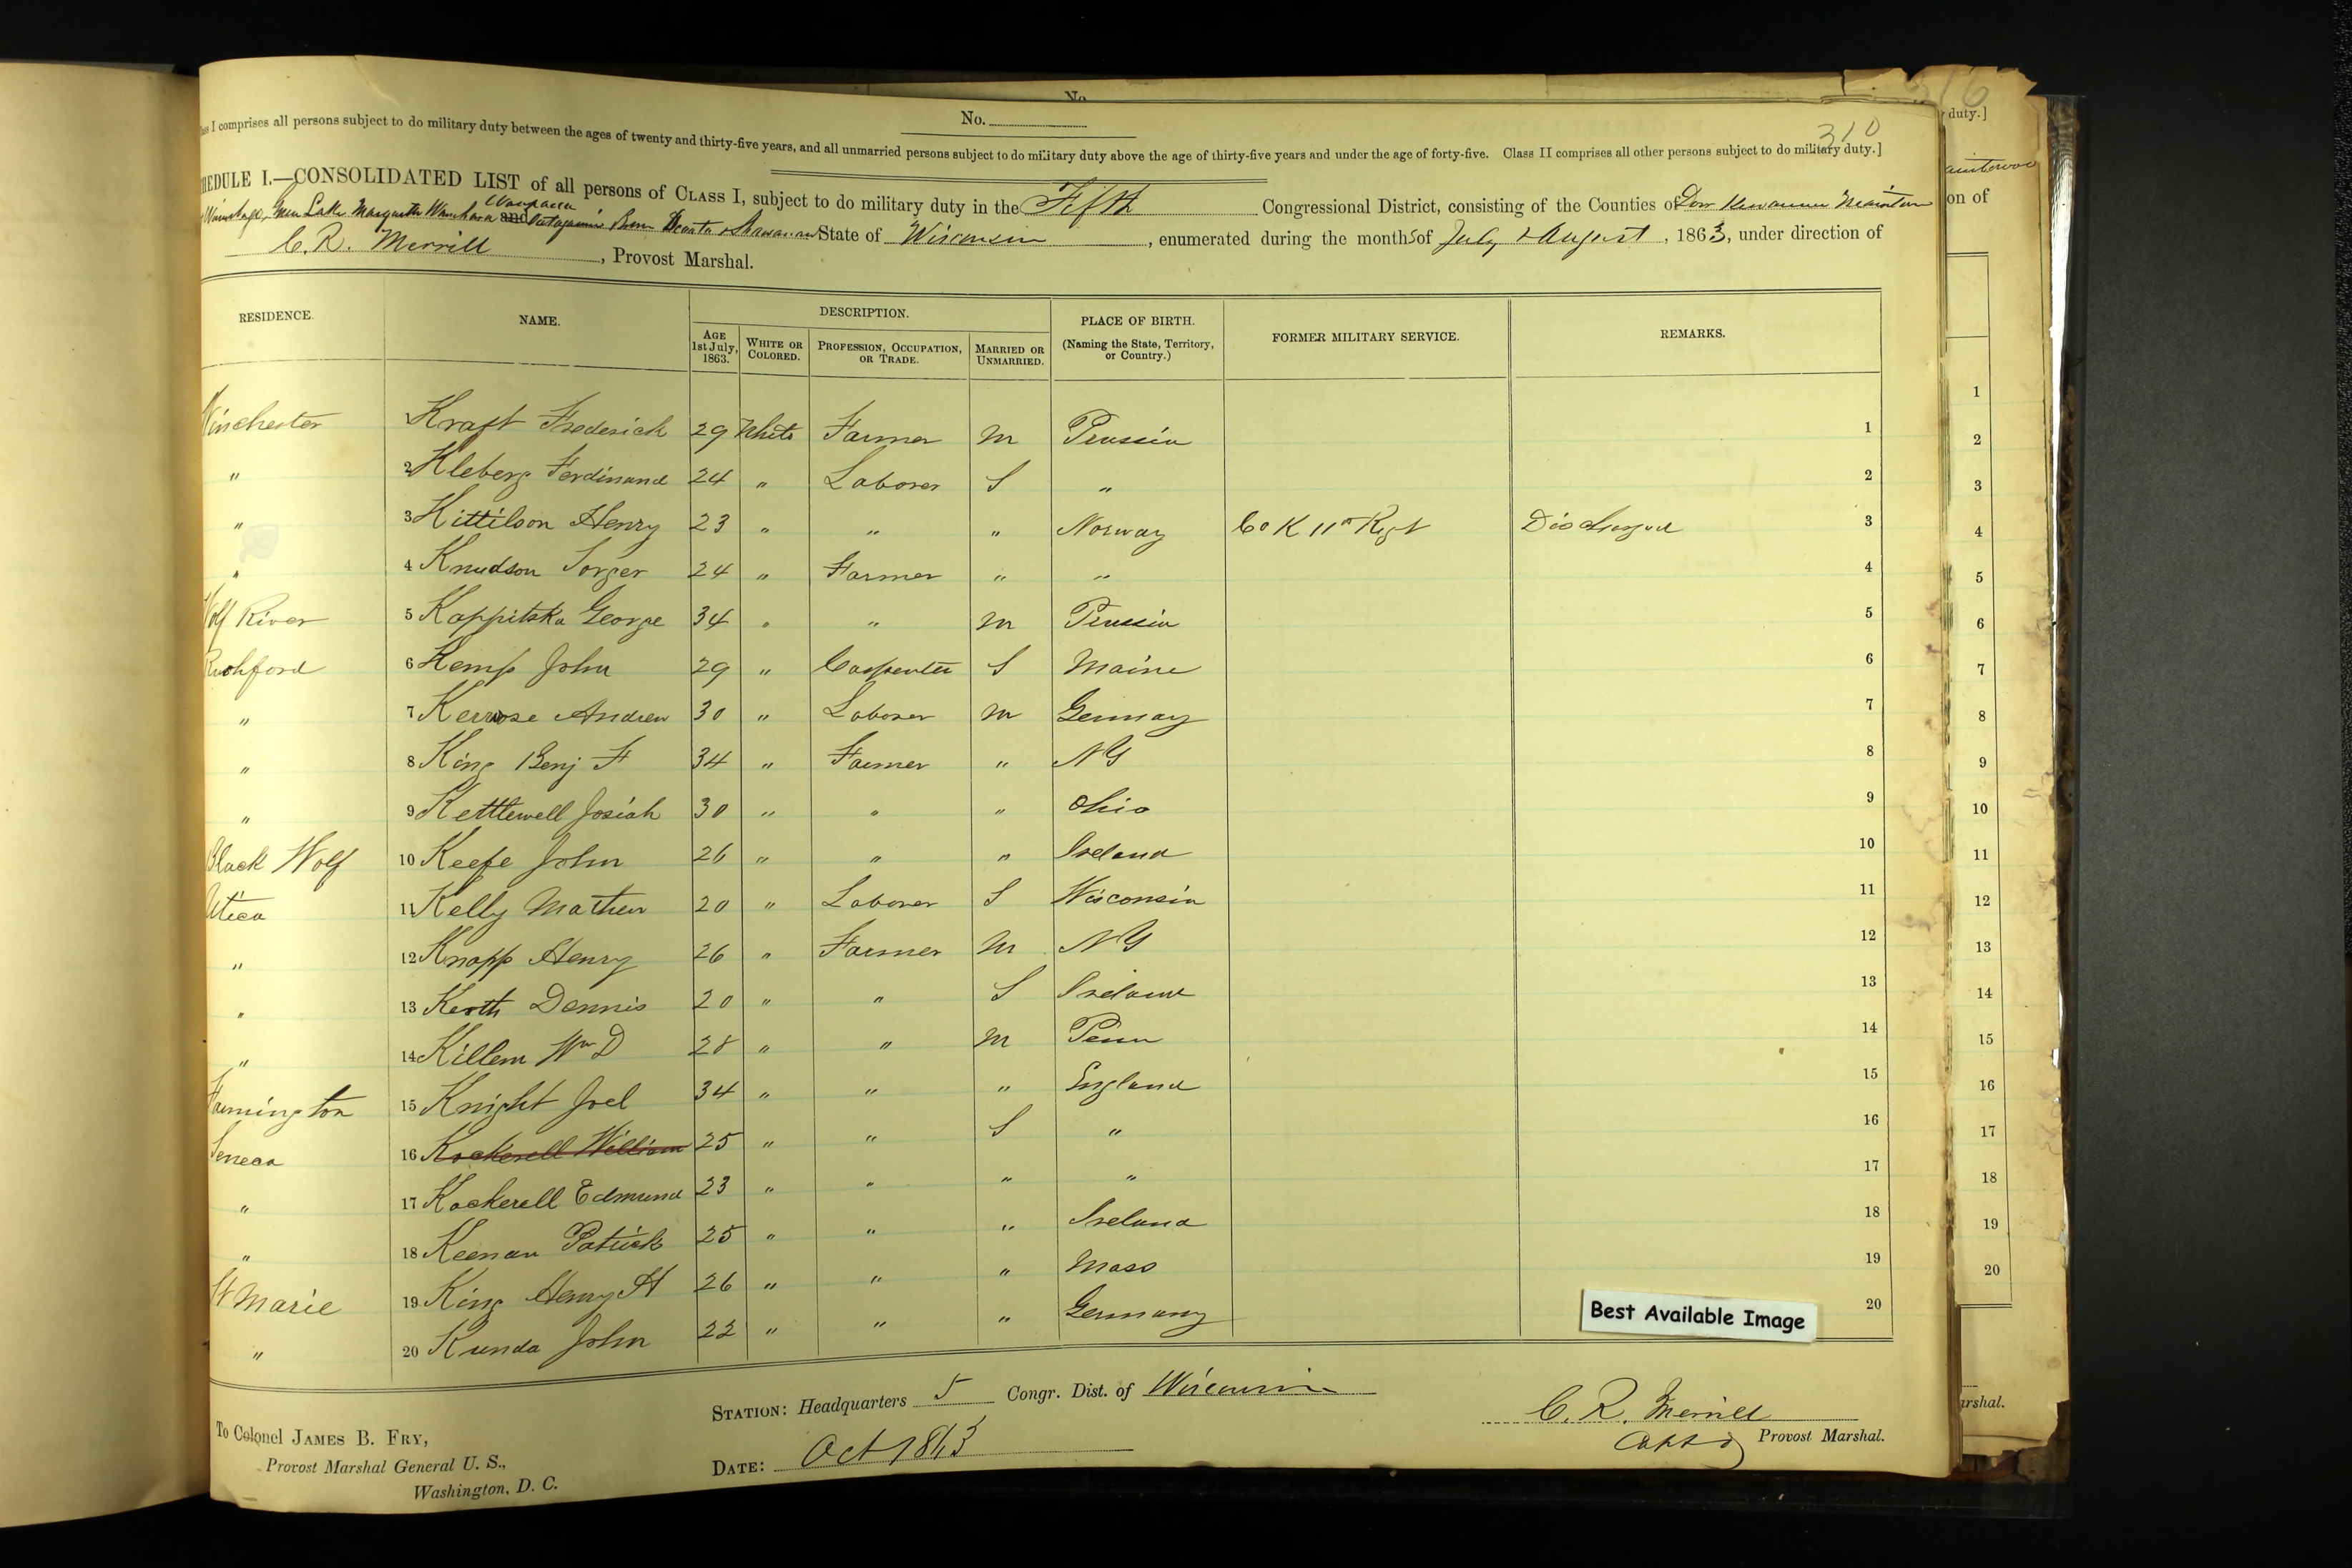 No.
No.
316
310
duty.]
ass I comprises all persons subject to do military duty between the ages of twenty and thirty-five years, and all unmarried persons subject to do military duty above the age of thirty-five years and under the age of forty-five. Class II comprises all other persons subject to do military duty.]
HEDULE I.—CONSOLIDATED LIST of all persons of CLASS I, subject to do military duty in the Fifth Congressional District, consisting of the Counties of Door Kewaunee
on of
Waupacca
Winnebago, Green Lake Marquette Waushara and Outagamie Brown Oconto & Shawanaw State of Wisconsin, enumerated during the months of July & August, 1863, under direction of
C. R. Merrill, Provost Marshal.
RESIDENCE. NAME. DESCRIPTION. PLACE OF BIRTH. (Naming the State, Territory, or Country.) FORMER MILITARY SERVICE. REMARKS.
AGE 1st July, 1863. WHITE OR COLORED. PROFESSION, OCCUPATION, OR TRADE. MARRIED OR UNMARRIED.
Winchester Kraft Frederick 29 White Farmer M Prussia 1
" 2 Kleberg Ferdinand 24 " Laborer S " 2
" 3 Kittilson Henry 23 " " " Norway Co K 11th Regt Discharged 3
" 4 Knudson Torger 24 " Farmer " " 4
Wolf River 5 Kappitska George 34 " " M Prussia 5
Richford 6 Kemp John 29 " Carpenter S Maine 6
" 7 Andrew 30 " Laborer M Germay 7
" 8 King Benj F 34 " Farmer " NY 8
" 9 Kettlewell Josiah 30 " " " Ohio 9
Black Wolf 10 Keefe John 26 " " " Ireland 10
Utica 11 Kelly Mathew 20 " Laborer S Wisconsin 11
" 12 Knapp Henry 26 " Farmer M NY 12
" 13 Keoth Dennis 20 " " S Ireland 13
" 14 Killem Wm D 28 " " M Penn 14
Farmington 15 Knight Joel 34 " " " England 15
Seneca 16 Kockerell William 25 " " S " 16
" 17 Kockerell Edmund 23 " " " " 17
" 18 Keenan Patrick 25 " " " Ireland 18
St Marie 19 King Henry H 26 " " " Mass 19
" 20 Kunda John 22 " " " Germany 20
1
2
3
4
5
6
7
8
9
10
11
12
13
14
15
16
17
18
19
20
Best Available Image
STATION: Headquarters 5 Congr. Dist. of Wisconsin
DATE: Oct 1863
C. R. Merrill
Capt & Provost Marshal.
To Colonel JAMES B. FRY,
Provost Marshal General U. S.,
Washington, D. C.
arshal.